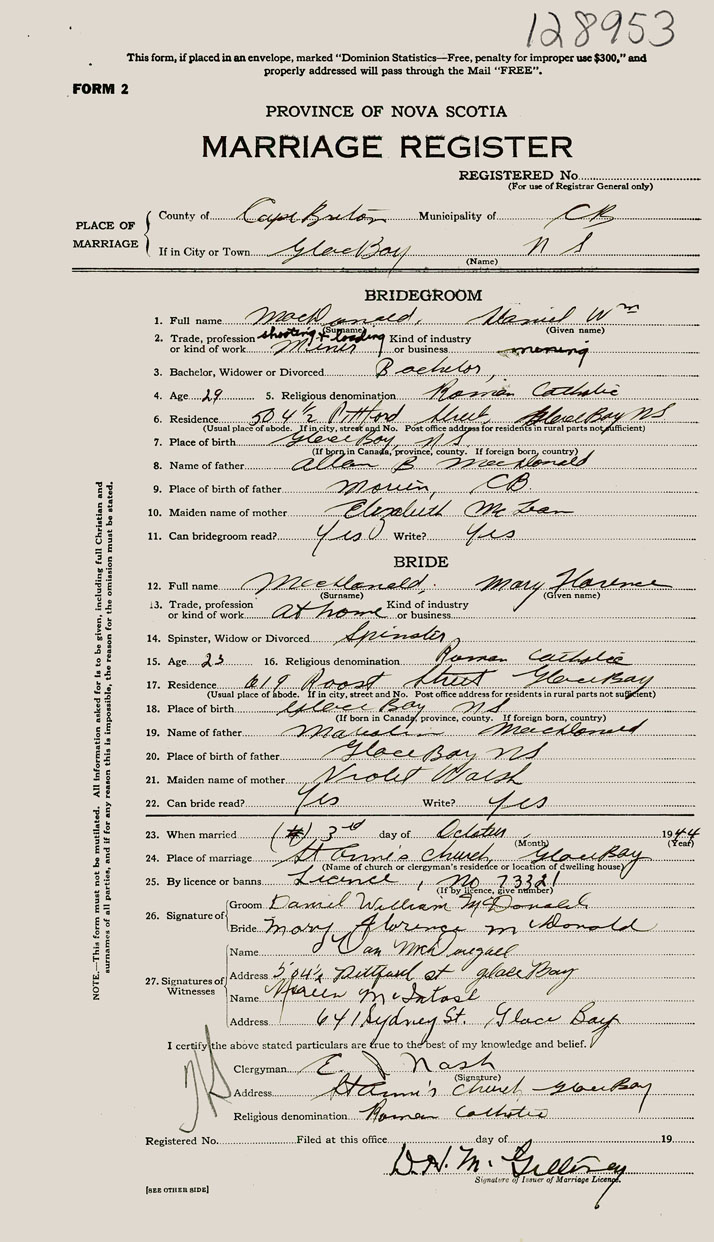 128953
This form, if placed in an envelope, marked "Dominion Statistics—Free, penalty for improper use $300," and
properly addressed will pass through the Mail "FREE".
FORM 2
PROVINCE OF NOVA SCOTIA
MARRIAGE REGISTER
REGISTERED No.
(For use of Registrar General only)
PLACE OF MARRIAGE
County of Cape Breton Municipality of CB
If in City or Town Glace Bay N S
(Name)
BRIDEGROOM
1. Full name MacDonald, Daniel Wm
(Surname) (Given name)
2. Trade, profession or kind of work shooting + loading Miner Kind of industry or business mening
3. Bachelor, Widower or Divorced Bachelor,
4. Age 29 5. Religious denomination Roman Catholic
6. Residence 504 1/2 Pittford Street, Glace Bay NS
(Usual place of abode. If in city, street and No. Post office address for residents in rural parts not sufficient)
7. Place of birth Glace Bay, N S.
(If born in Canada, province, county. If foreign born, country)
8. Name of father Allan B MacDonald
9. Place of birth of father CB
10. Maiden name of mother Elizabeth McLean
11. Can bridegroom read? Yes Write? Yes
BRIDE
12. Full name MacDonald, Mary Florence
(Surname) (Given name)
13. Trade, profession or kind of work At home Kind of industry or business
14. Spinster, Widow or Divorced Spinster
15. Age 23 16. Religious denomination Roman Catholic
17. Residence 619 Roost Street Glace Bay
(Usual place of abode. If in city, street and No. Post office address for residents in rural parts not sufficient)
18. Place of birth Glace Bay NS
(If born in Canada, province, county. If foreign born, country)
19. Name of father Malcolm MacDonald
20. Place of birth of father Glace Bay NS
21. Maiden name of mother Violet Walsh
22. Can bride read? Yes Write? Yes
23. When married 3rd day of October 1944
(Month) (Year)
24. Place of marriage St Anne's Church, Glace Bay
(Name of church or clergyman's residence or location of dwelling house)
25. By licence or banns Licence, No 73321
(If by licence, give number)
26. Signature of
Groom Daniel William McDonald
Bride Mary Florence McDonald
27. Signatures of Witnesses
Name Dan
Address 504 1/2 Pittford st glace Bay
Name McIntosh
Address 641 Sydney St. Glace Bay
I certify the above stated particulars are true to the best of my knowledge and belief.
Clergyman E. J Nash
(Signature)
Address St Anne's Church Glace Bay
Religious denomination Roman Catholic
Registered No. Filed at this office day of 19
D. H. Mc
Signature of Issuer of Marriage Licence.
[SEE OTHER SIDE]
NOTE.—This form must not be mutilated. All information asked for is to be given, including full Christian and
surnames of all parties, and if for any reason this is impossible, the reason for the omission must be stated.